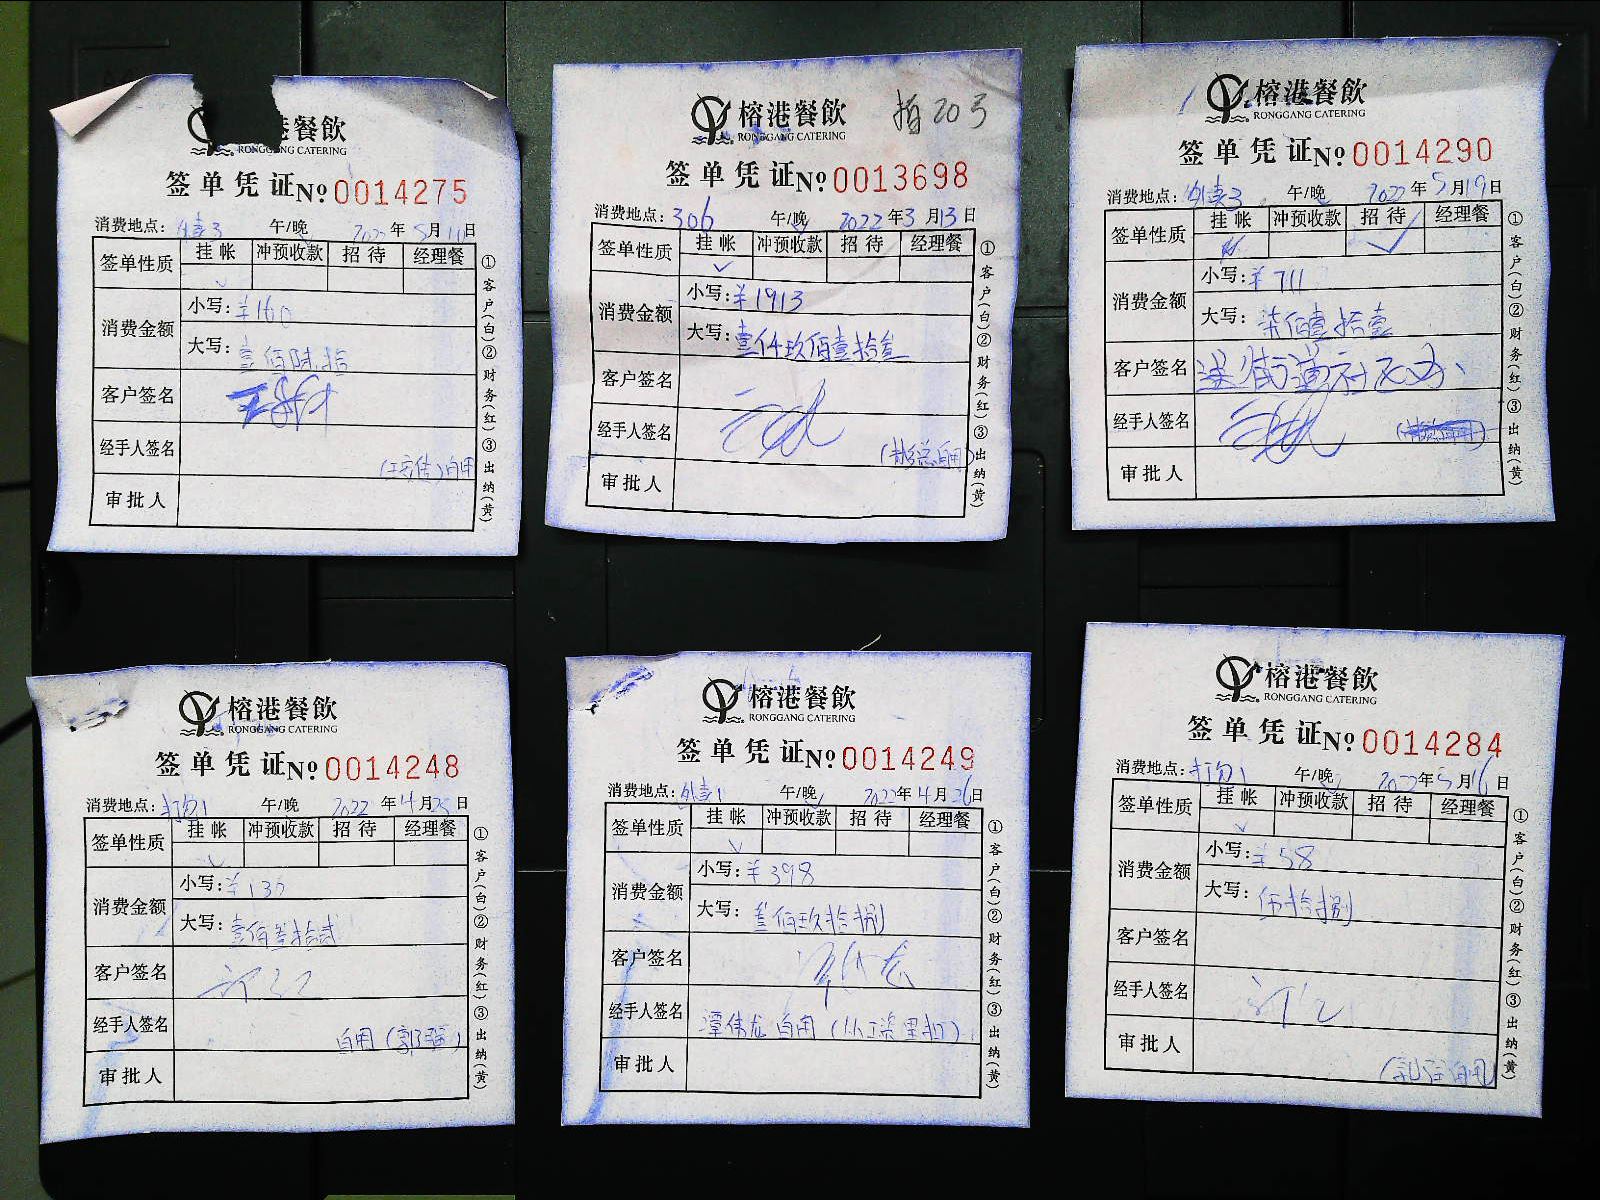 港餐飲
RONGGANG CATERING
签单凭证No 0014275
消费地点: 午/晚 2022年5月11日
签单性质 挂帐 冲预收款 招待 经理餐
消费金额 小写:¥160
大写:壹佰陆拾
客户签名
经手人签名
自用
审批人
①客户(白)②财务(红)③出纳(黄)
榕港餐飲
RONGGANG CATERING
签单凭证No 0013698
消费地点:306 午/晚 2022年3月13日
签单性质 挂帐 冲预收款 招待 经理餐
消费金额 小写:¥1913
大写:壹仟玖佰壹拾叁
客户签名
经手人签名
自用
审批人
①客户(白)②财务(红)③出纳(黄)
榕港餐飲
RONGGANG CATERING
签单凭证No 0014290
消费地点: 午/晚 2022年5月19日
签单性质 挂帐 冲预收款 招待 经理餐
消费金额 小写:¥711
大写:柒佰壹拾壹
客户签名
经手人签名
审批人
①客户(白)②财务(红)③出纳(黄)
榕港餐飲
RONGGANG CATERING
签单凭证No 0014248
消费地点:打包1 午/晚 2022年4月25日
签单性质 挂帐 冲预收款 招待 经理餐
消费金额 小写:
大写:壹佰叁拾贰
客户签名
经手人签名
自用
审批人
①客户(白)②财务(红)③出纳(黄)
榕港餐飲
RONGGANG CATERING
签单凭证No 0014249
消费地点: 午/晚 2022年4月26日
签单性质 挂帐 冲预收款 招待 经理餐
消费金额 小写:¥398
大写:叁佰玖拾捌
客户签名
经手人签名 谭伟龙 自用
审批人
①客户(白)②财务(红)③出纳(黄)
榕港餐飲
RONGGANG CATERING
签单凭证No 0014284
消费地点:打包1 午/晚 2022年5月16日
签单性质 挂帐 冲预收款 招待 经理餐
消费金额 小写:¥58
大写:伍拾捌
客户签名
经手人签名
审批人
自用
①客户(白)②财务(红)③出纳(黄)